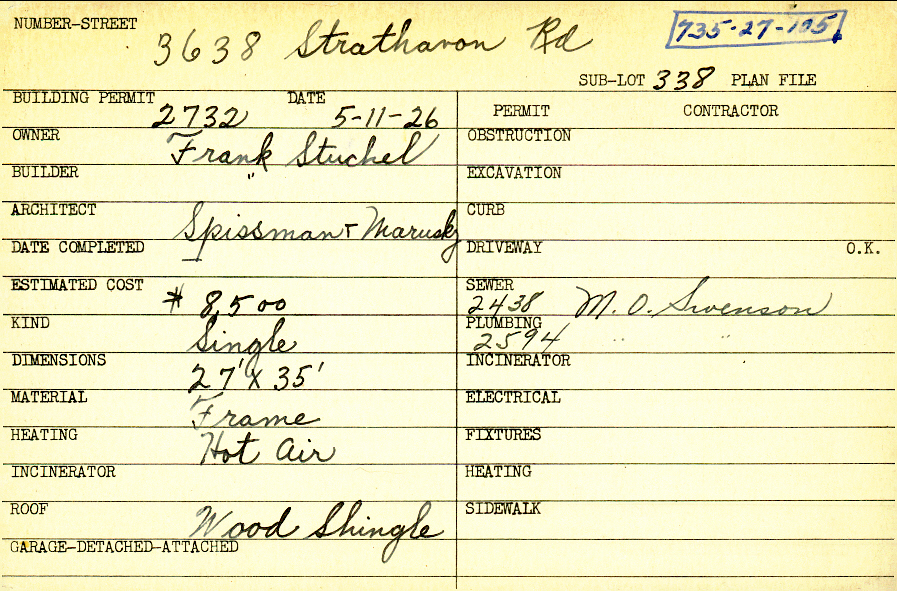 NUMBER-STREET 3638 Strathavon Rd 735-27-105
SUB-LOT 338 PLAN FILE
BUILDING PERMIT 2732 DATE 5-11-26
PERMIT CONTRACTOR
OWNER Frank Stuchel
OBSTRUCTION
BUILDER "
EXCAVATION
ARCHITECT Spissman + Marusky
CURB
DATE COMPLETED
DRIVEWAY O.K.
ESTIMATED COST $ 8500
SEWER 2438 M. O. Swenson
KIND Single
PLUMBING 2594 " "
DIMENSIONS 27' X 35'
INCINERATOR
MATERIAL Frame
ELECTRICAL
HEATING Hot Air
FIXTURES
INCINERATOR
HEATING
ROOF Wood Shingle
SIDEWALK
GARAGE-DETACHED-ATTACHED